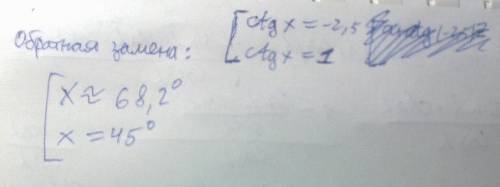 Обратная замена:
[ctg x = -2,5
ctg x = 1
[x ≈ 68,2°
x = 45°